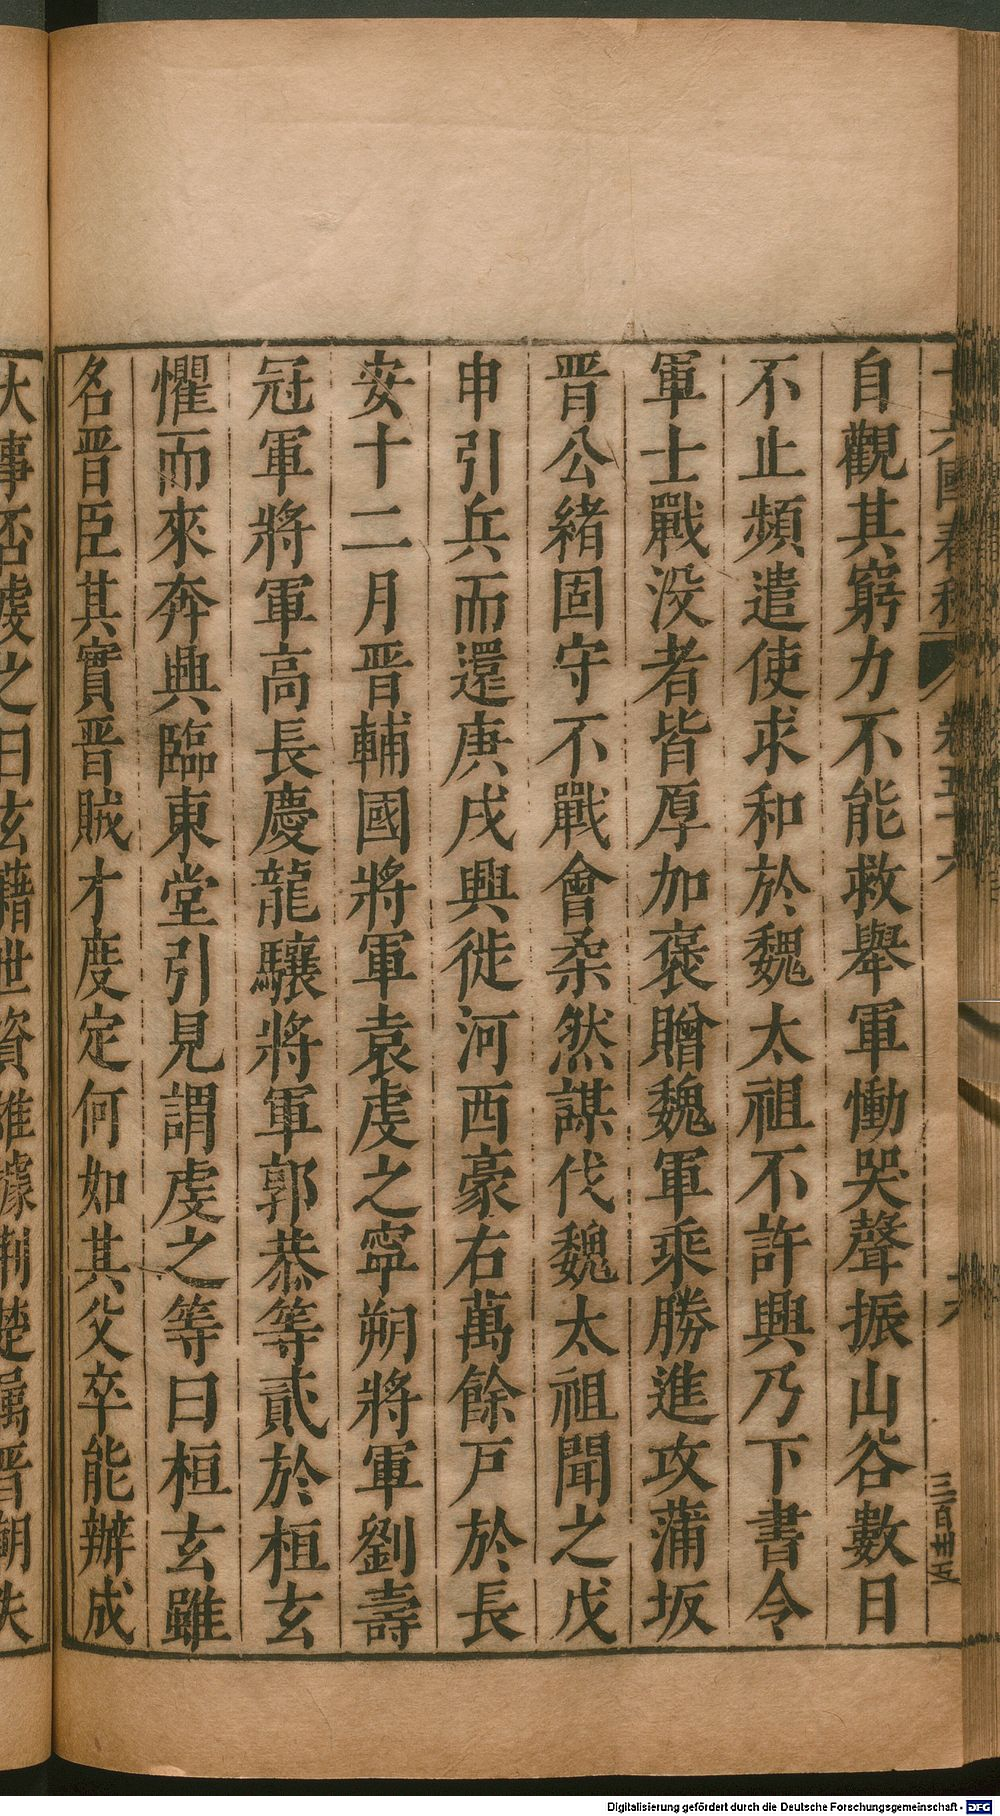 十六國春秋 卷五十六 十六 三百卅五
自觀其窮力不能救舉軍慟哭聲振山谷數日
不止頻遣使求和於魏太祖不許興乃下書令
軍士戰没者皆厚加褒贈魏軍乘勝進攻蒲坂
晋公緒固守不戰會柔然謀伐魏太祖聞之戊
申引兵而還庚戌興徙河西豪右萬餘戸於長
安十二月晋輔國將軍袁虔之寧朔將軍劉壽
冠軍將軍高長慶龍驤將軍郭恭等貳於桓玄
懼而來奔興臨東堂引見謂虔之等曰桓玄雖
名晋臣其實晋賊才度定何如其父卒能辦成
大事否虔之曰玄藉世資雄據荆楚属晋朝失
Digitalisierung gefördert durch die Deutsche Forschungsgemeinschaft - DFG